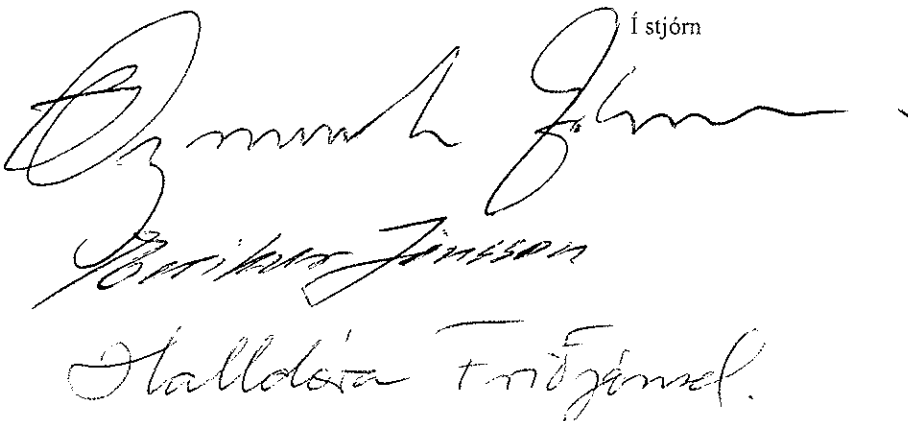 Í stjórn
Ögmundur Jónasson
Eiríkur Jónsson
Halldóra Friðjónsd.